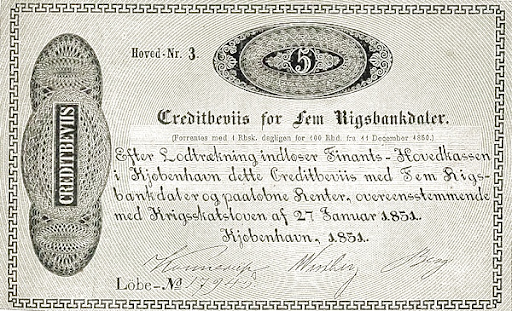 Hoved-Nr. 3.
5
CREDITBEVIIS
Creditbeviis for Fem Rigsbankdaler.
(Forrentes med 1 Rbsk. dagligen for 100 Rbd. fra 11 December 1850.)
Efter Lodtrækning indløser Finants-Hovedkassen
i Kjøbenhavn dette Creditbeviis med Fem Rigs-
bankdaler og paaløbne Renter, overeensstemmende
med Krigsskatsloven af 27 Januar 1851.
Kjøbenhavn, 1851.
Berg
Löbe-No